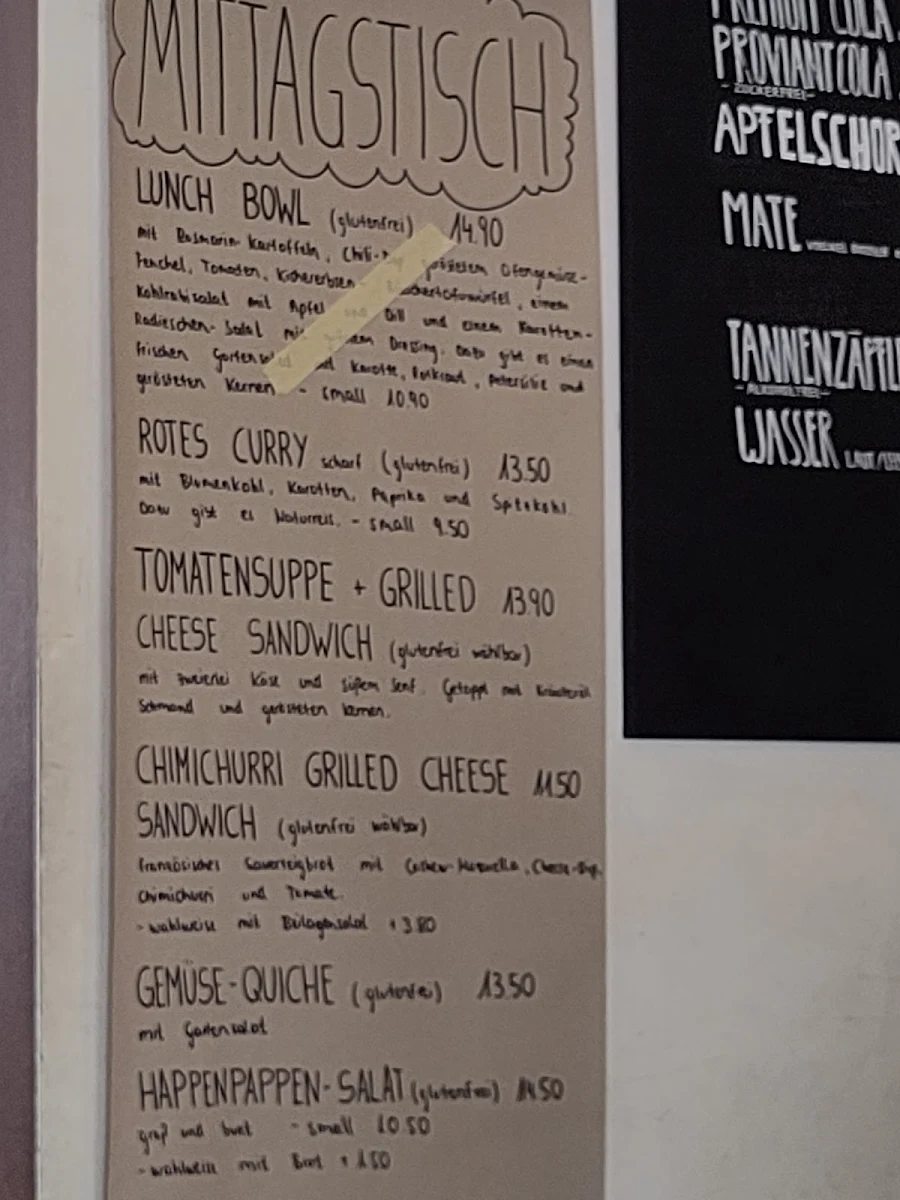 MITTAGSTISCH
LUNCH BOWL (glutenfrei) 14.90
mit Rosmarin-Kartoffeln, Chili- geröstetem Ofengemüse-
Fenchel, Tomaten, Kichererbsen- Räuchertofuwürfel, einem
Kohlrabisalat mit Apfel und Dill und einem Karotten-
Radieschen-Salat mit Dressing. Dazu gibt es einen
frischen Gartensalat mit Karotte, Rotkraut, Petersilie und
gerösteten Kernen - small 10.90
ROTES CURRY scharf (glutenfrei) 13.50
mit Blumenkohl, Karotten, Paprika und Spitzkohl.
Dazu gibt es Naturreis. - small 9.50
TOMATENSUPPE + GRILLED 13.90
CHEESE SANDWICH (glutenfrei wählbar)
mit zweierlei Käse und süßem Senf. Getoppt mit Kräuteröl
Schmand und gerösteten Kernen.
CHIMICHURRI GRILLED CHEESE 11.50
SANDWICH (glutenfrei wählbar)
französisches Sauerteigbrot mit Cashew-Mozzarella, Cheese-Dip,
Chimichurri und Tomate.
- wahlweise mit Beilagensalat + 3.80
GEMÜSE-QUICHE (glutenfrei) 13.50
mit Gartensalat
HAPPENPAPPEN-SALAT (glutenfrei) 14.50
groß und bunt - small 10.50
- wahlweise mit Brot + 1.50
PREMIUM COLA
PROVIANT COLA
- ZUCKERFREI -
APFELSCHOR
MATE
TANNENZÄPFL
- ALKOHOLFREI -
WASSER LAUT/LEI